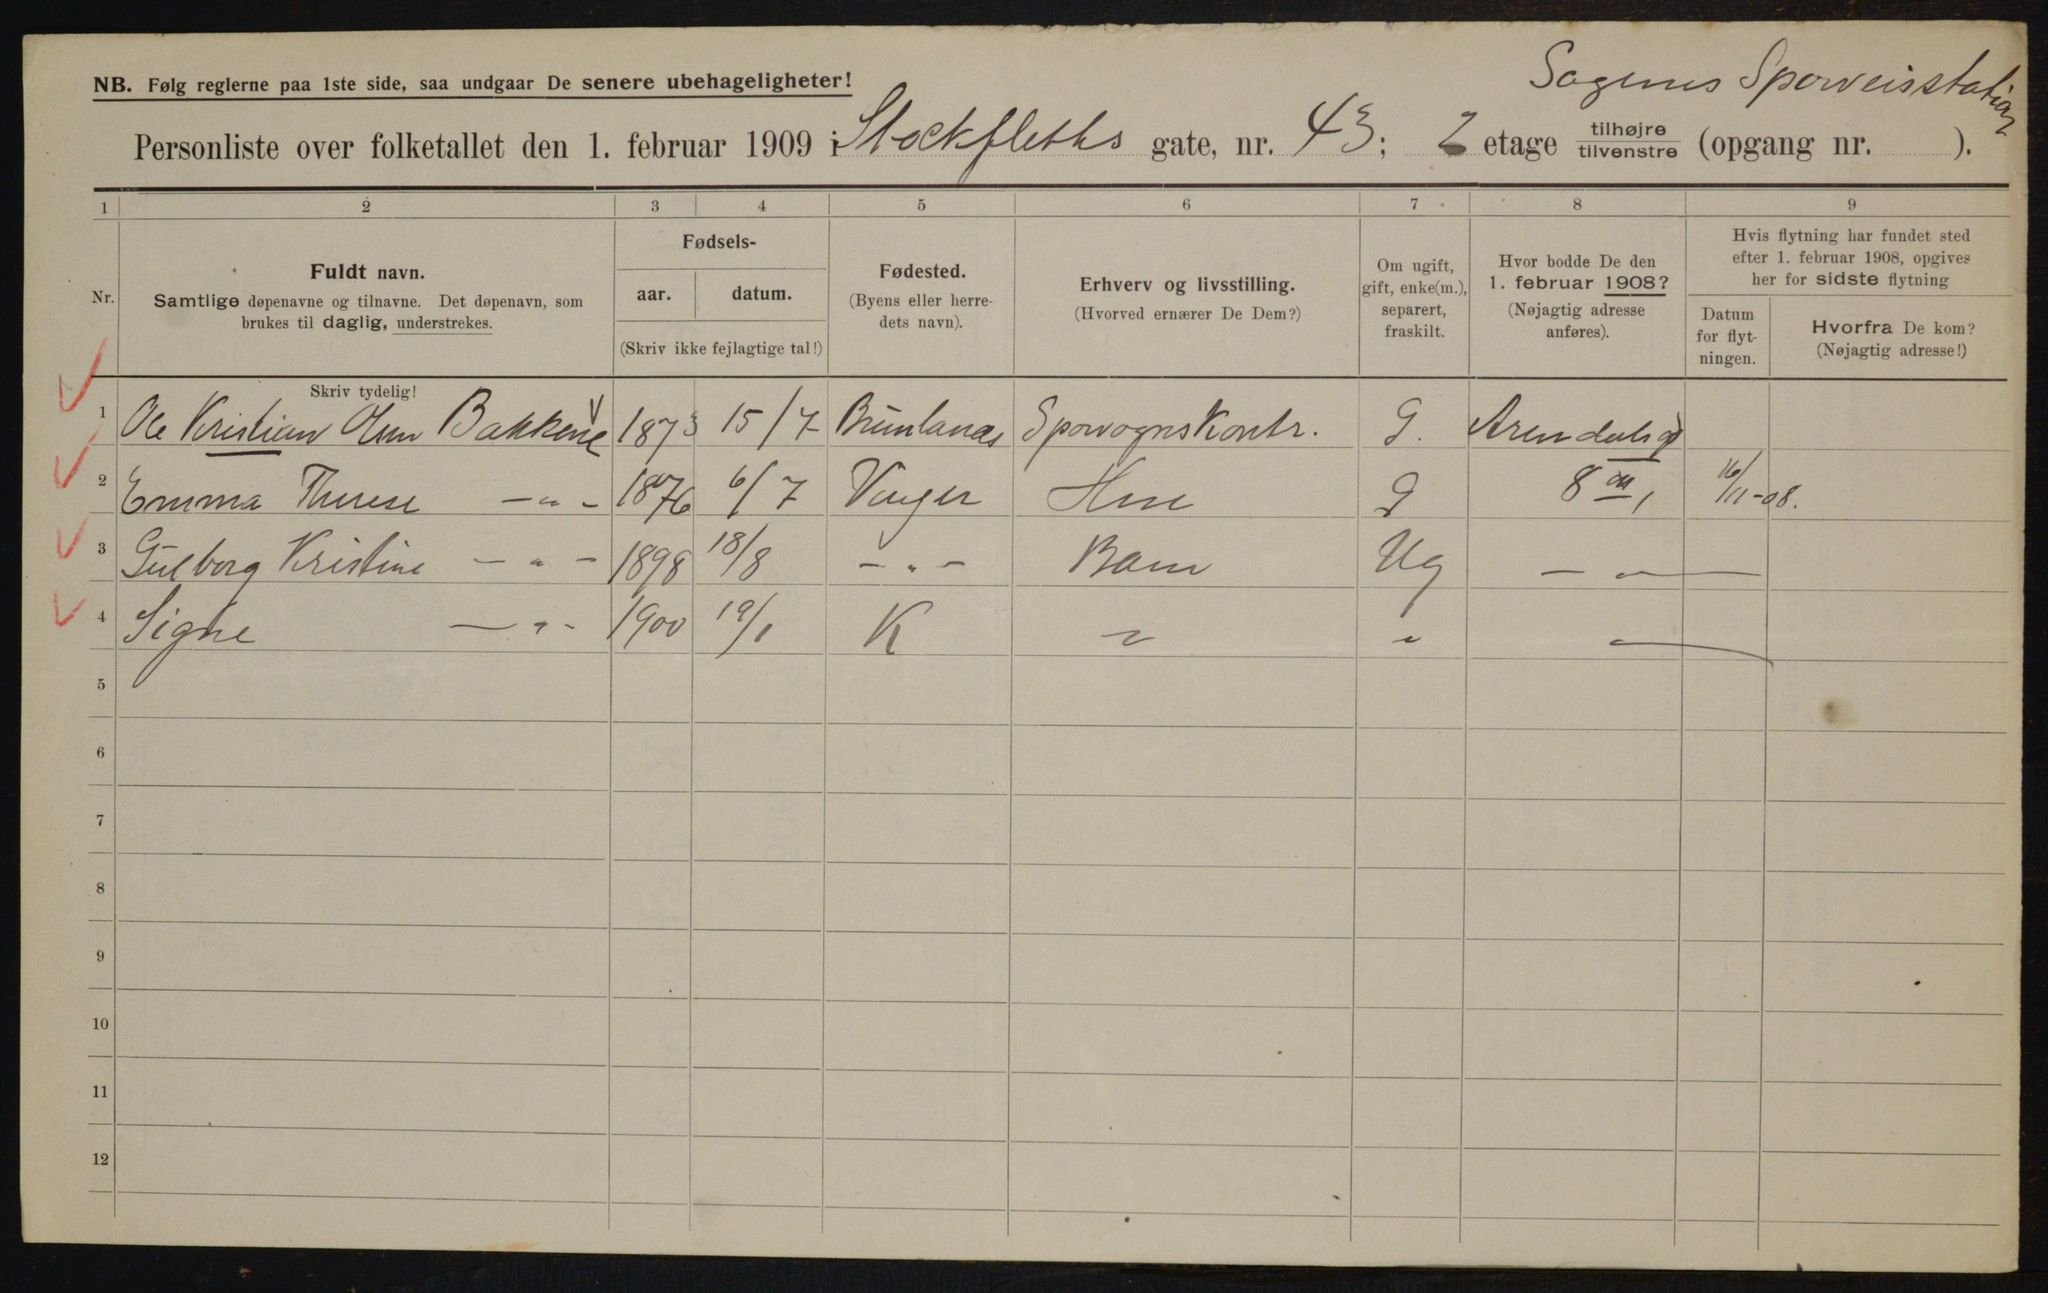 Sagenes Sporveisstation
NB. Følg reglerne paa 1ste side, saa undgaar De senere ubehageligheter!
Personliste over folketallet den 1. februar 1909 i Stockfleths gate, nr. 43; 2 etage tilhøjre tilvenstre (opgang nr. ).
1 2 3 4 5 6 7 8 9
Nr.
Fuldt navn.
Samtlige døpenavne og tilnavne. Det døpenavn, som
brukes til daglig, understrekes.
Fødsels-
aar. datum.
(Skriv ikke fejlagtige tal!)
Fødested.
(Byens eller herre-
dets navn).
Erhverv og livsstilling.
(Hvorved ernærer De Dem?)
Om ugift,
gift, enke(m.),
separert,
fraskilt.
Hvor bodde De den
1. februar 1908?
(Nøjagtig adresse
anføres).
Hvis flytning har fundet sted
efter 1. februar 1908, opgives
her for sidste flytning
Datum
for flyt-
ningen.
Hvorfra De kom?
(Nøjagtig adresse!)
Skriv tydelig!
1 Ole Kristian Olsen Bakkene 1873 15/7 Brunlanæs Sporvognskontr. G. Arendalsg
2 Emma Therese -"- 1876 6/7 Vinger G 8 16/11-08.
3 Gulborg Kristine -"- 1898 18/8 -"- Barn Ug -"-
4 Signe -"- 1900 19/1 K " " "
5
6
7
8
9
10
11
12